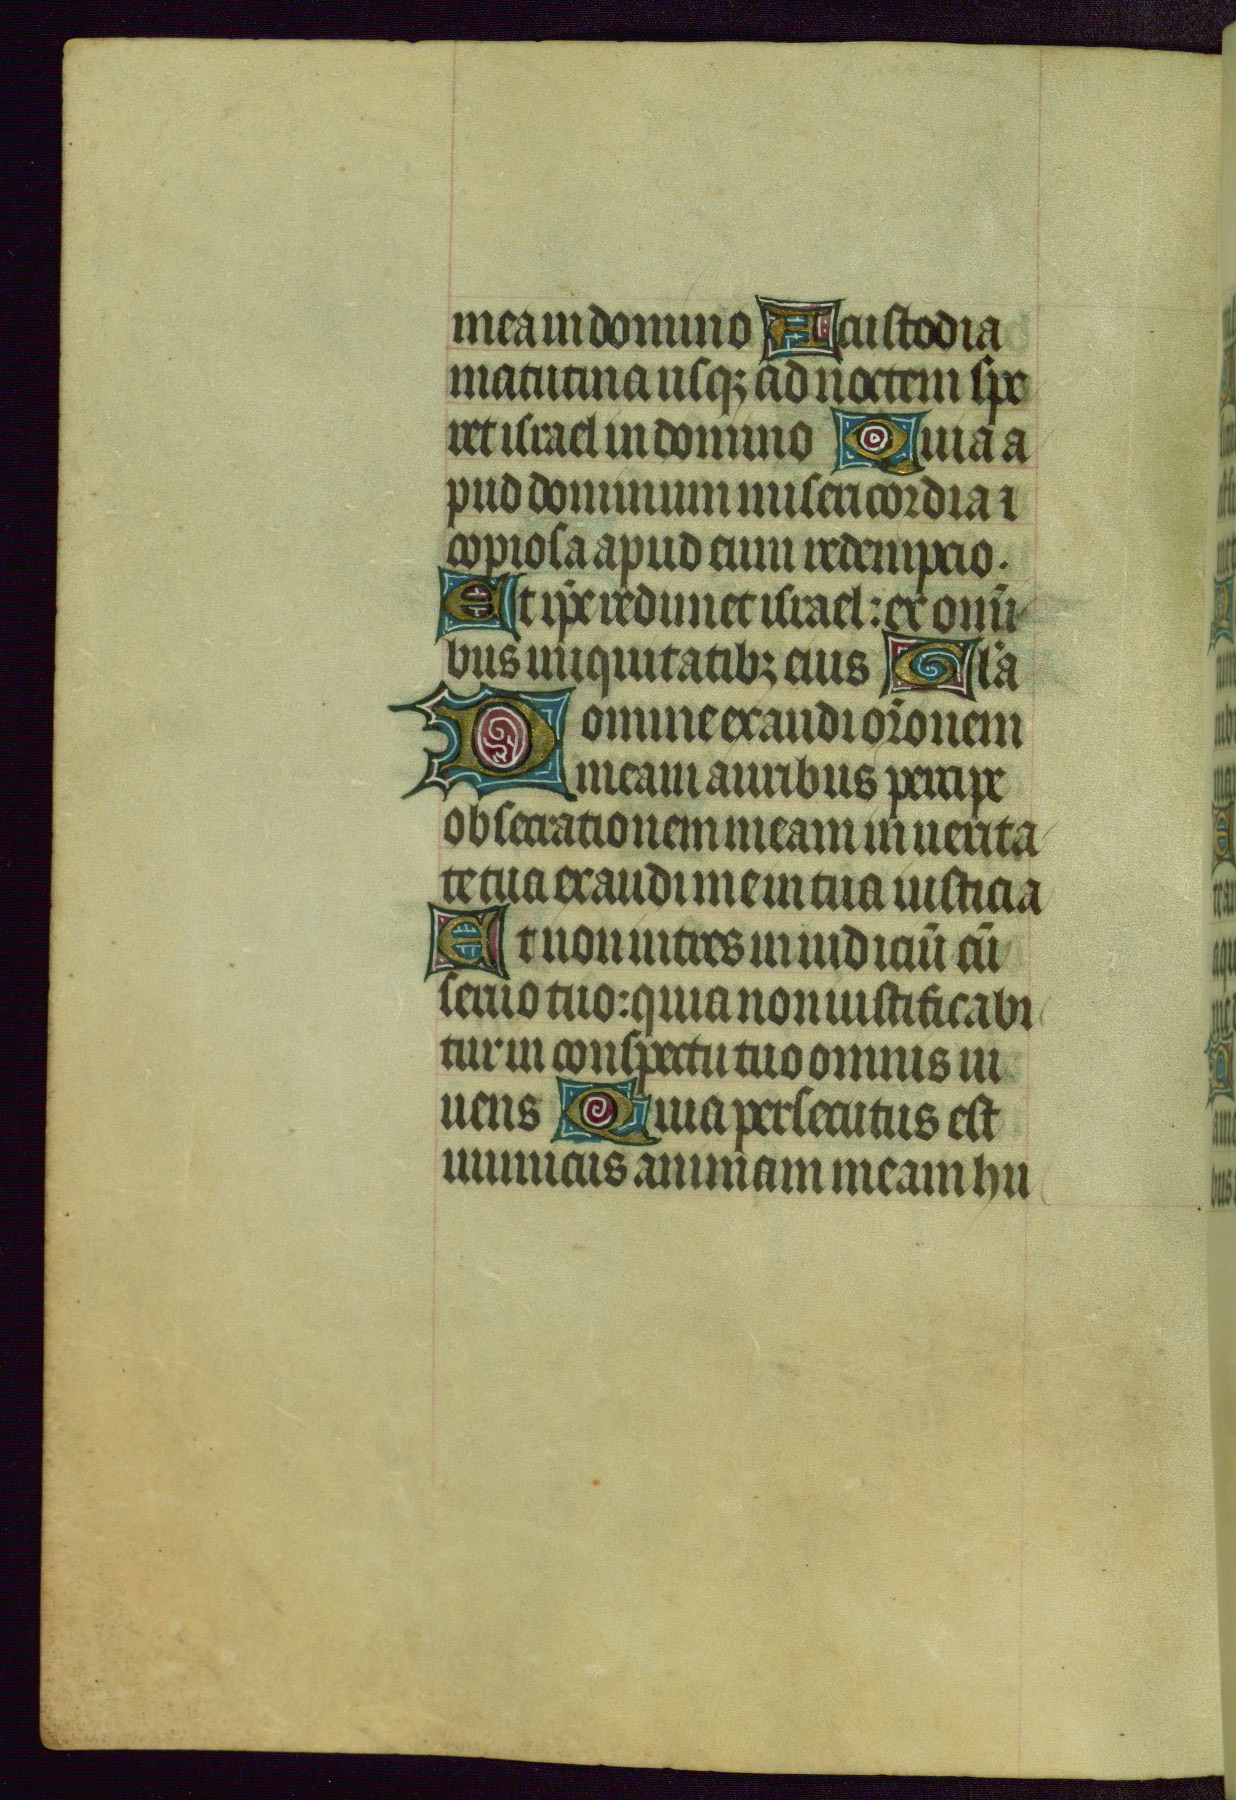 mea in domino A custodia
matutina usqꝫ ad noctem spe
ret israel in domino Quia a
pud dominum misericordia ⁊
copiosa apud eum redempcio.
Et ip̄e redimet israel: ex omī
bus iniquitatibꝫ eius Gl'a
Domine exaudi or̄onem
meam auribus percipe
obsecrationem meam in uerita
te tua exaudi me in tua iusticia
Et non intres in iudiciū cū
seruo tuo: quia non iustificabi
tur in conspectu tuo omnis ui
uens Quia persecutus est
inimicus animam meam hu